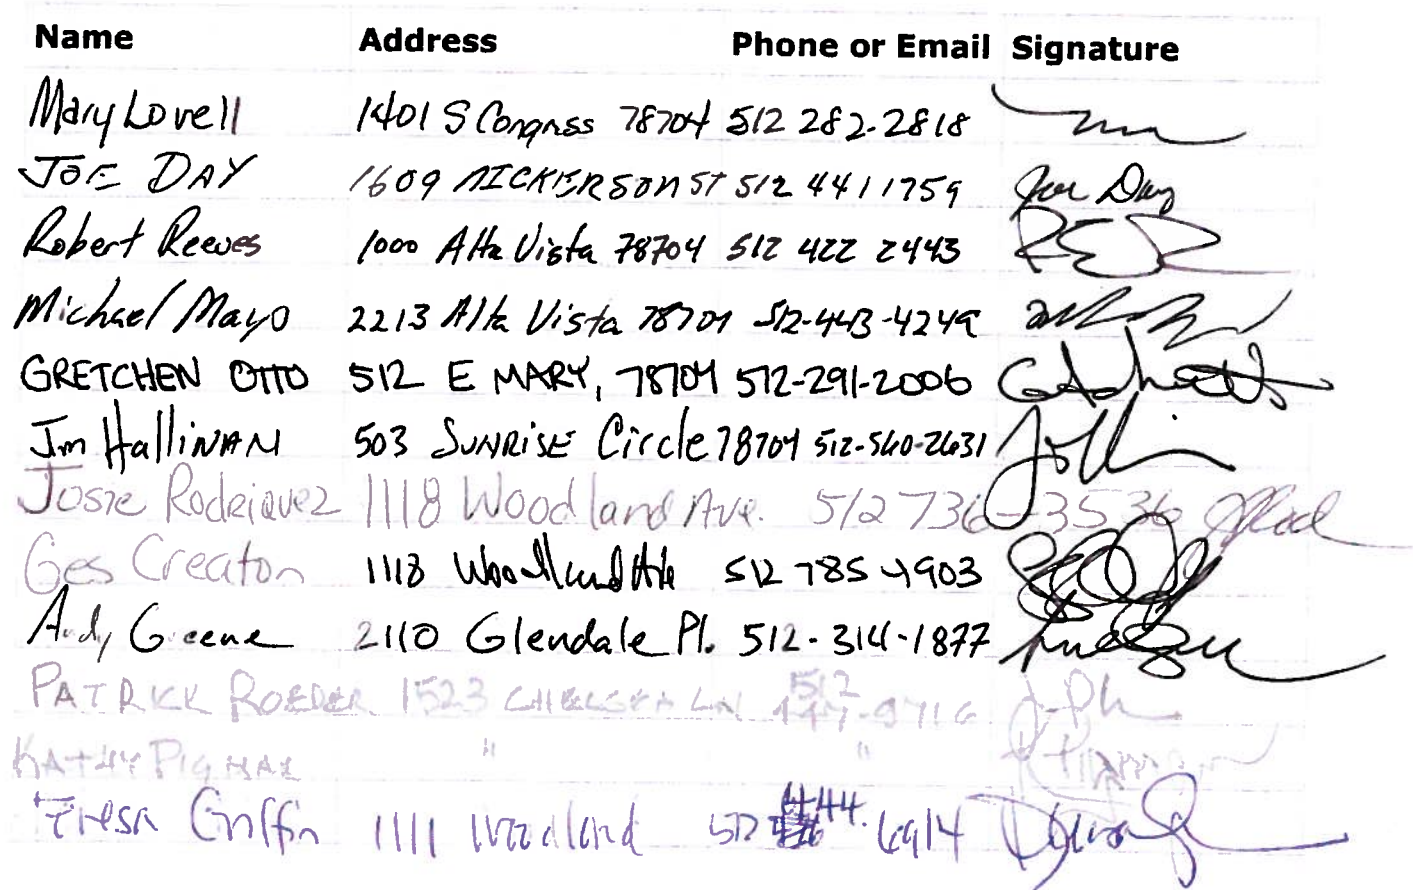 Name Address Phone or Email Signature
Mary Lovell 1401 S Congress 78704 512 282-2818
JOE DAY 1609 NICKERSON ST 512 441 1759 Joe Day
Robert Reeves 1000 Alta Vista 78704 512 422 2443
Michael Mayo 2213 Alta Vista 78704 512-443-4249
GRETCHEN OTTO 512 E MARY, 78704 512-291-2006
Jim HalliNAN 503 SUNRiSE Circle 78704 512-560-2631
Josie Rodriquez 1118 Woodland Ave. 512 736-3536
Ges Creaton 1118 Woodland Ave 512 785 4903
Andy Greene 2110 Glendale Pl. 512-314-1877
PATRICK ROEDER 1523 CHELSEA LN 512 447-9716
KATHY " "
Teresa Griffin 1111 Woodland 512 444-6914